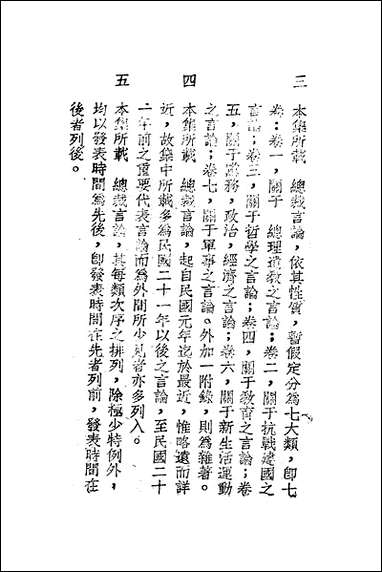 三　本集所載　總裁言論，依其性質，暫假定分爲七大類，卽七
卷：卷一，關于　總理遺教之言論；卷二，關于抗戰建國之
言論；卷三，關于哲學之言論；卷四，關于教育之言論；卷
五，關于黨務，政治，經濟之言論；卷六，關于新生活運動
之言論；卷七，關于軍事之言論。外加一附錄，則爲雜著。
四　本集所載　總裁言論，起自民國元年迄於最近，惟略遠而詳
近，故集中所載多爲民國二十一年以後之言論，至民國二十
一年前之重要代表言論而爲外間所少見者亦多列入。
五　本集所載　總裁言論，其每類次序之排列，除極少特例外，
均以發表時間爲先後，卽發表時間在先者列前，發表時間在
後者列後。